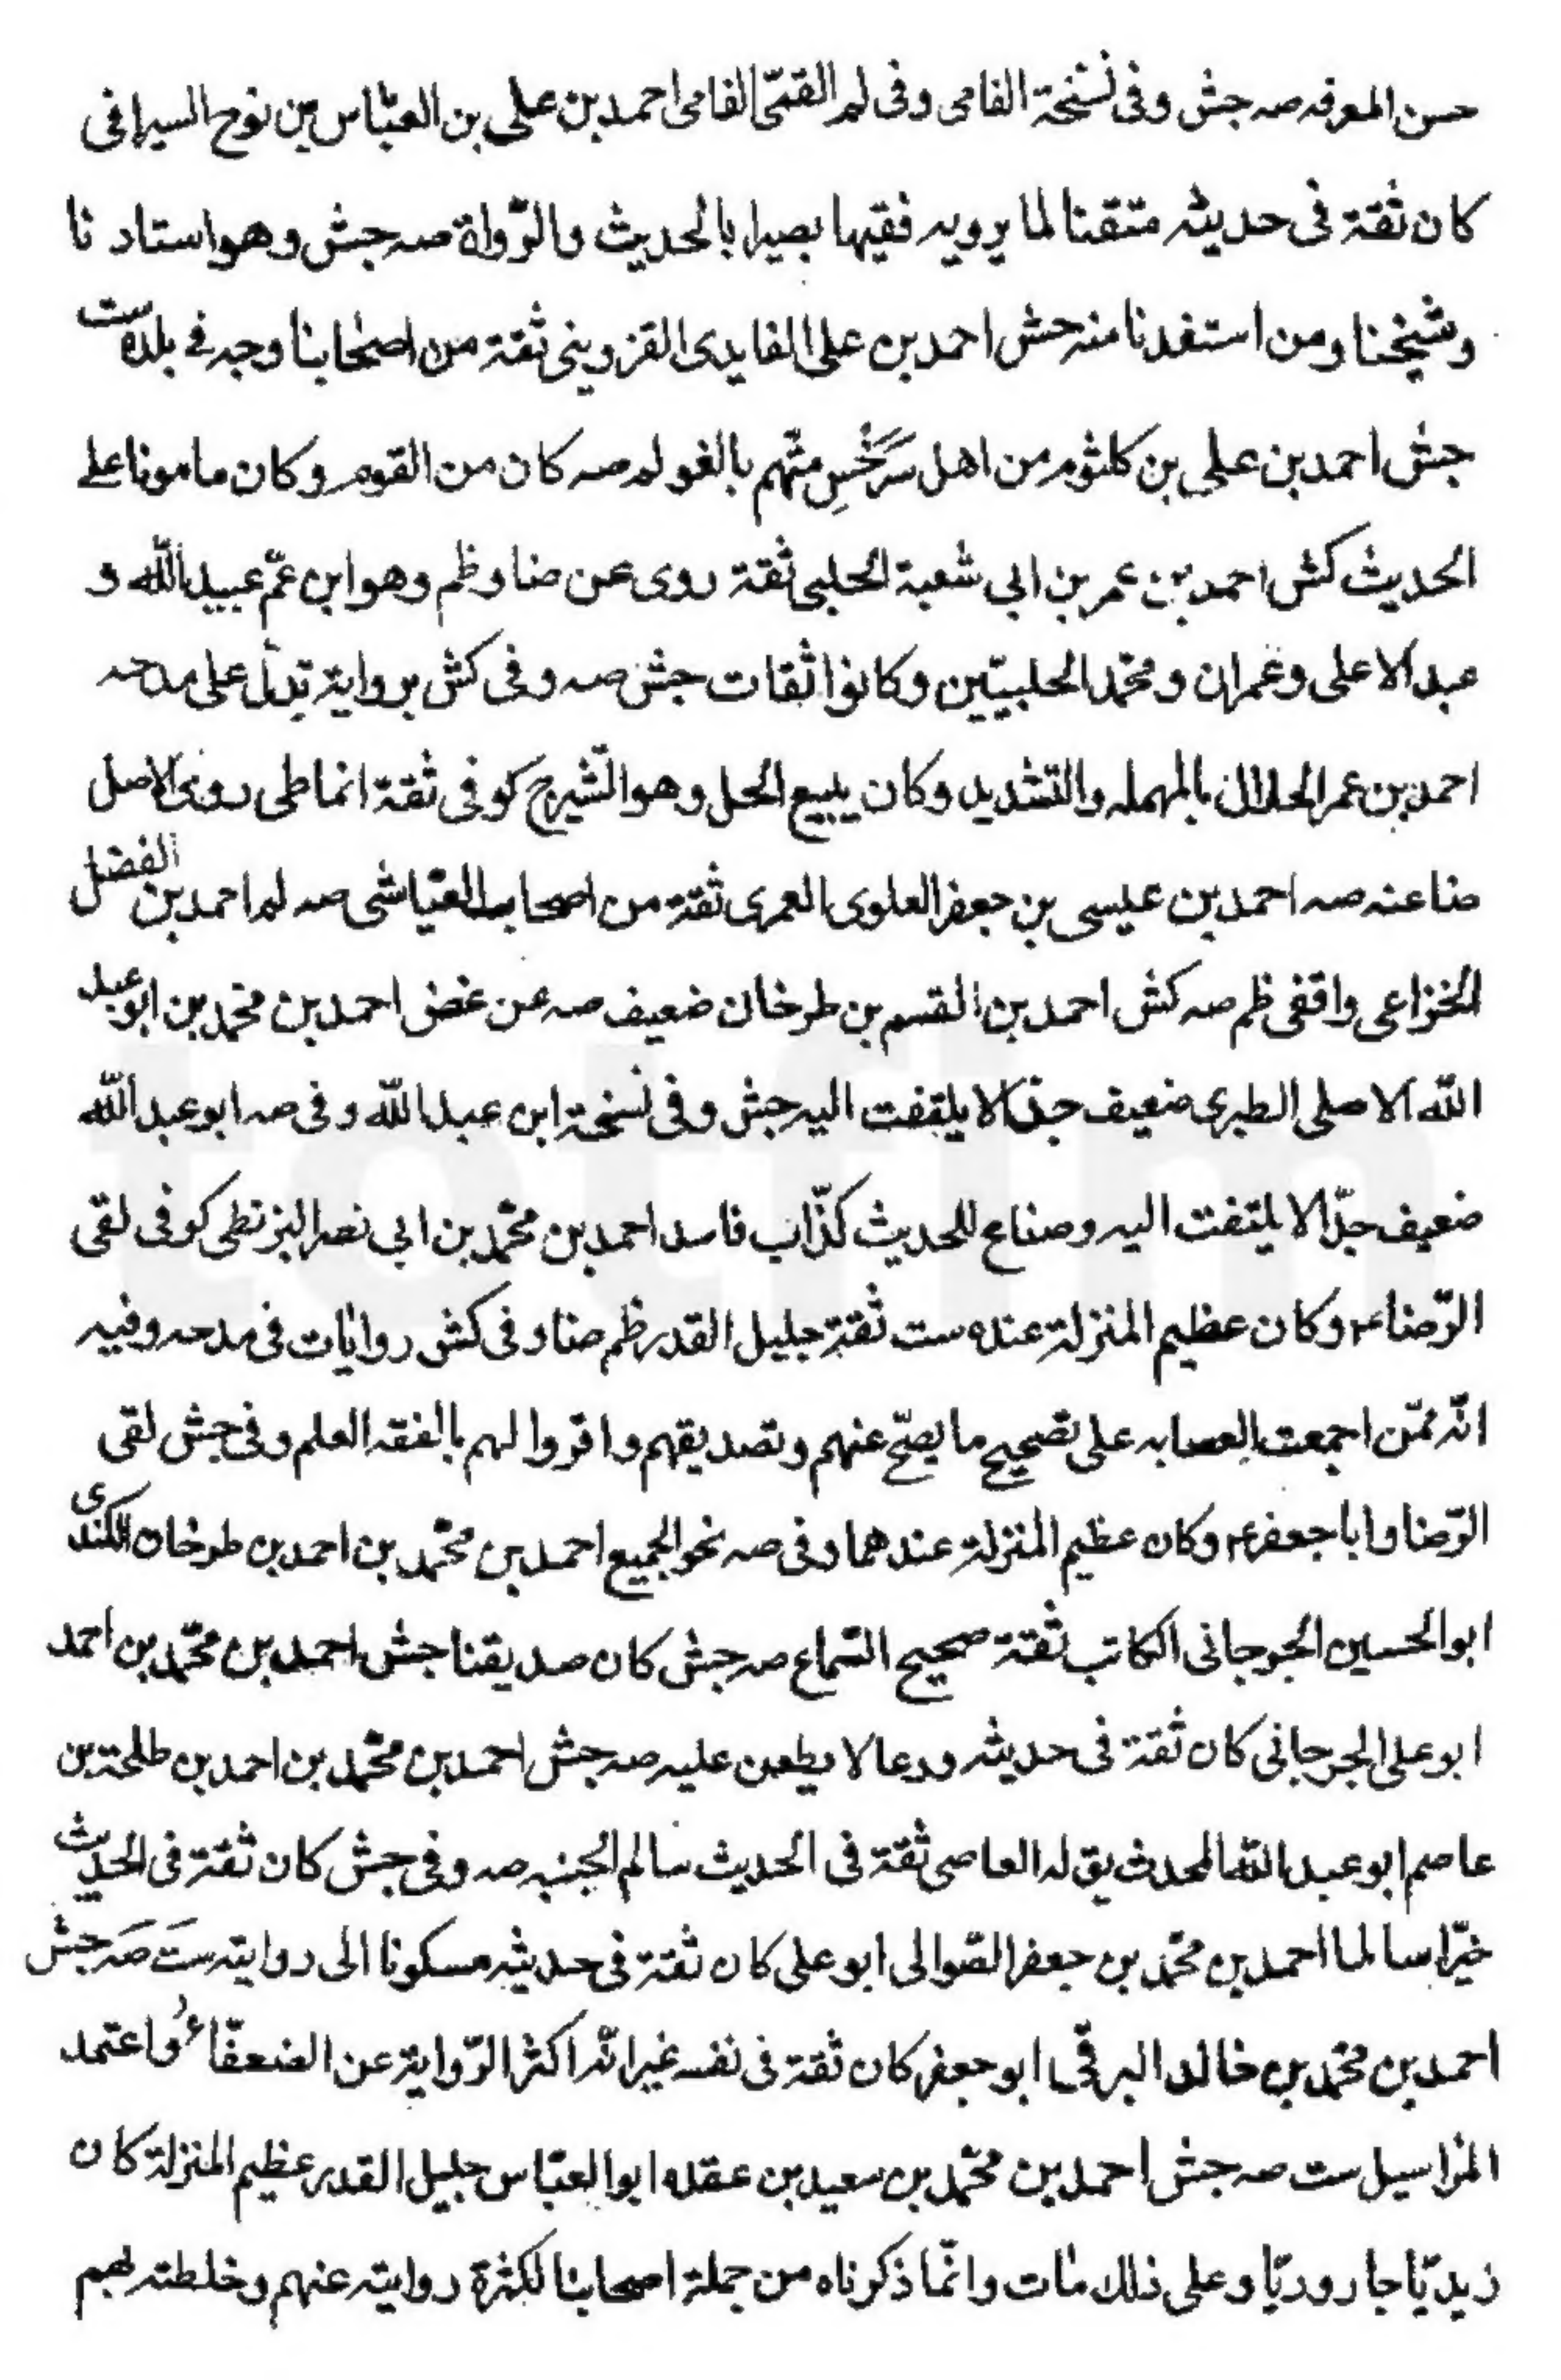 حسن المعرفه صه جش وفى نسخة الفامى وفى لم القمّى الفامى احمد بن على بن العبّاس بن نوح السيرافى
كان ثقة فى حديثه متقنا لما يرويه فقيها بصيرا بالحديث والرّواة صه جش وهو استادنا
وشيخنا ومن استفدنا منه جش احمد بن على الفايدى القزوينى ثقة من اصحابنا وجه فے بلده ست
جش احمد بن على بن كلثوم من اهل سَرَخْسِ متّهم بالغو لم صه كان من القوم وكان مامونا على
الحديث كش احمد بن عمر بن ابى شعبة الحلبى ثقة روى عن ضا وظم وهو ابن عمّ عبيد الله و
عبد الاعلى وعمران ومحمّد الحلبيّين وكانوا ثقات جش صه وفى كش بروايه تدلّ على مدحه
احمد بن عمر الحلال بالمهمله والتشديد وكان يبيع الحل وهو الشّيرج كوفى ثقة انماطى ردى الاصل
ضا عنه صه احمد بن عيسى بن جعفر العلوى العمرى ثقة من اصحاب العيّاشى صه لم احمد بن الفضل
الخزاعى واقفى ظم صه كش احمد بن القسم بن طرخان ضعيف صه عن غض احمد بن محمّد بن ابو عبد
اللّه الاصلى الطبرى ضعيف جدّا لا يلتفت اليه جش وفى نسخة ابن عبد اللّه وفى صه ابو عبد اللّه
ضعيف جدّا لا يلتفت اليه وصناع للحديث كذّاب فاسد احمد بن محمّد بن ابى نصر البزنطى كوفى لقى
الرّضا ع وكان عظيم المنزلة عنده ست ثقة جليل القدر ظم ضا وفى كش روايات فى مدحه وفيه
انّه ممّن اجمعت العصابه على تصحيح ما يصحّ عنهم وتصديقهم واقروا لهم بالفقه العلم وفى جش لقى
الرّضا وابا جعفر ع وكان عظيم المنزلة عندهما وفى صه نحو الجميع احمد بن محمّد بن احمد بن طرخان الكندى
ابو الحسين الجرجانى الكاتب ثقة صحيح السّماع صه جش كان صديقنا جش احمد بن محمّد بن احمد
ابو على الجرجانى كان ثقة فى حديثه ورعا لا يطعن عليه صه جش احمد بن محمّد بن احمد بن طلحة بن
عاصم ابو عبد اللّه المحدث يق له العاصى ثقة فى الحديث سالم الجنبه صه وفى جش كان ثقة فى الحديث
خيّرا سالما احمد بن محمّد بن جعفر الصّوالى ابو على كان ثقة فى حديثه مسكونا الى روايته ست صه جش
احمد بن محمّد بن خالد البرقّى ابو جعفر كان ثقة فى نفسه غير انّه اكثر الرّواية عن الضعفاء واعتمد
المراسيل ست صه جش احمد بن محمّد بن سعيد بن عقده ابو العبّاس جليل القدر عظيم المنزلة كان
زيديّا جاروديّا وعلى ذلك مات وانّما ذكرناه من جملة اصحابنا لكثرة روايته عنهم وخلطته بهم